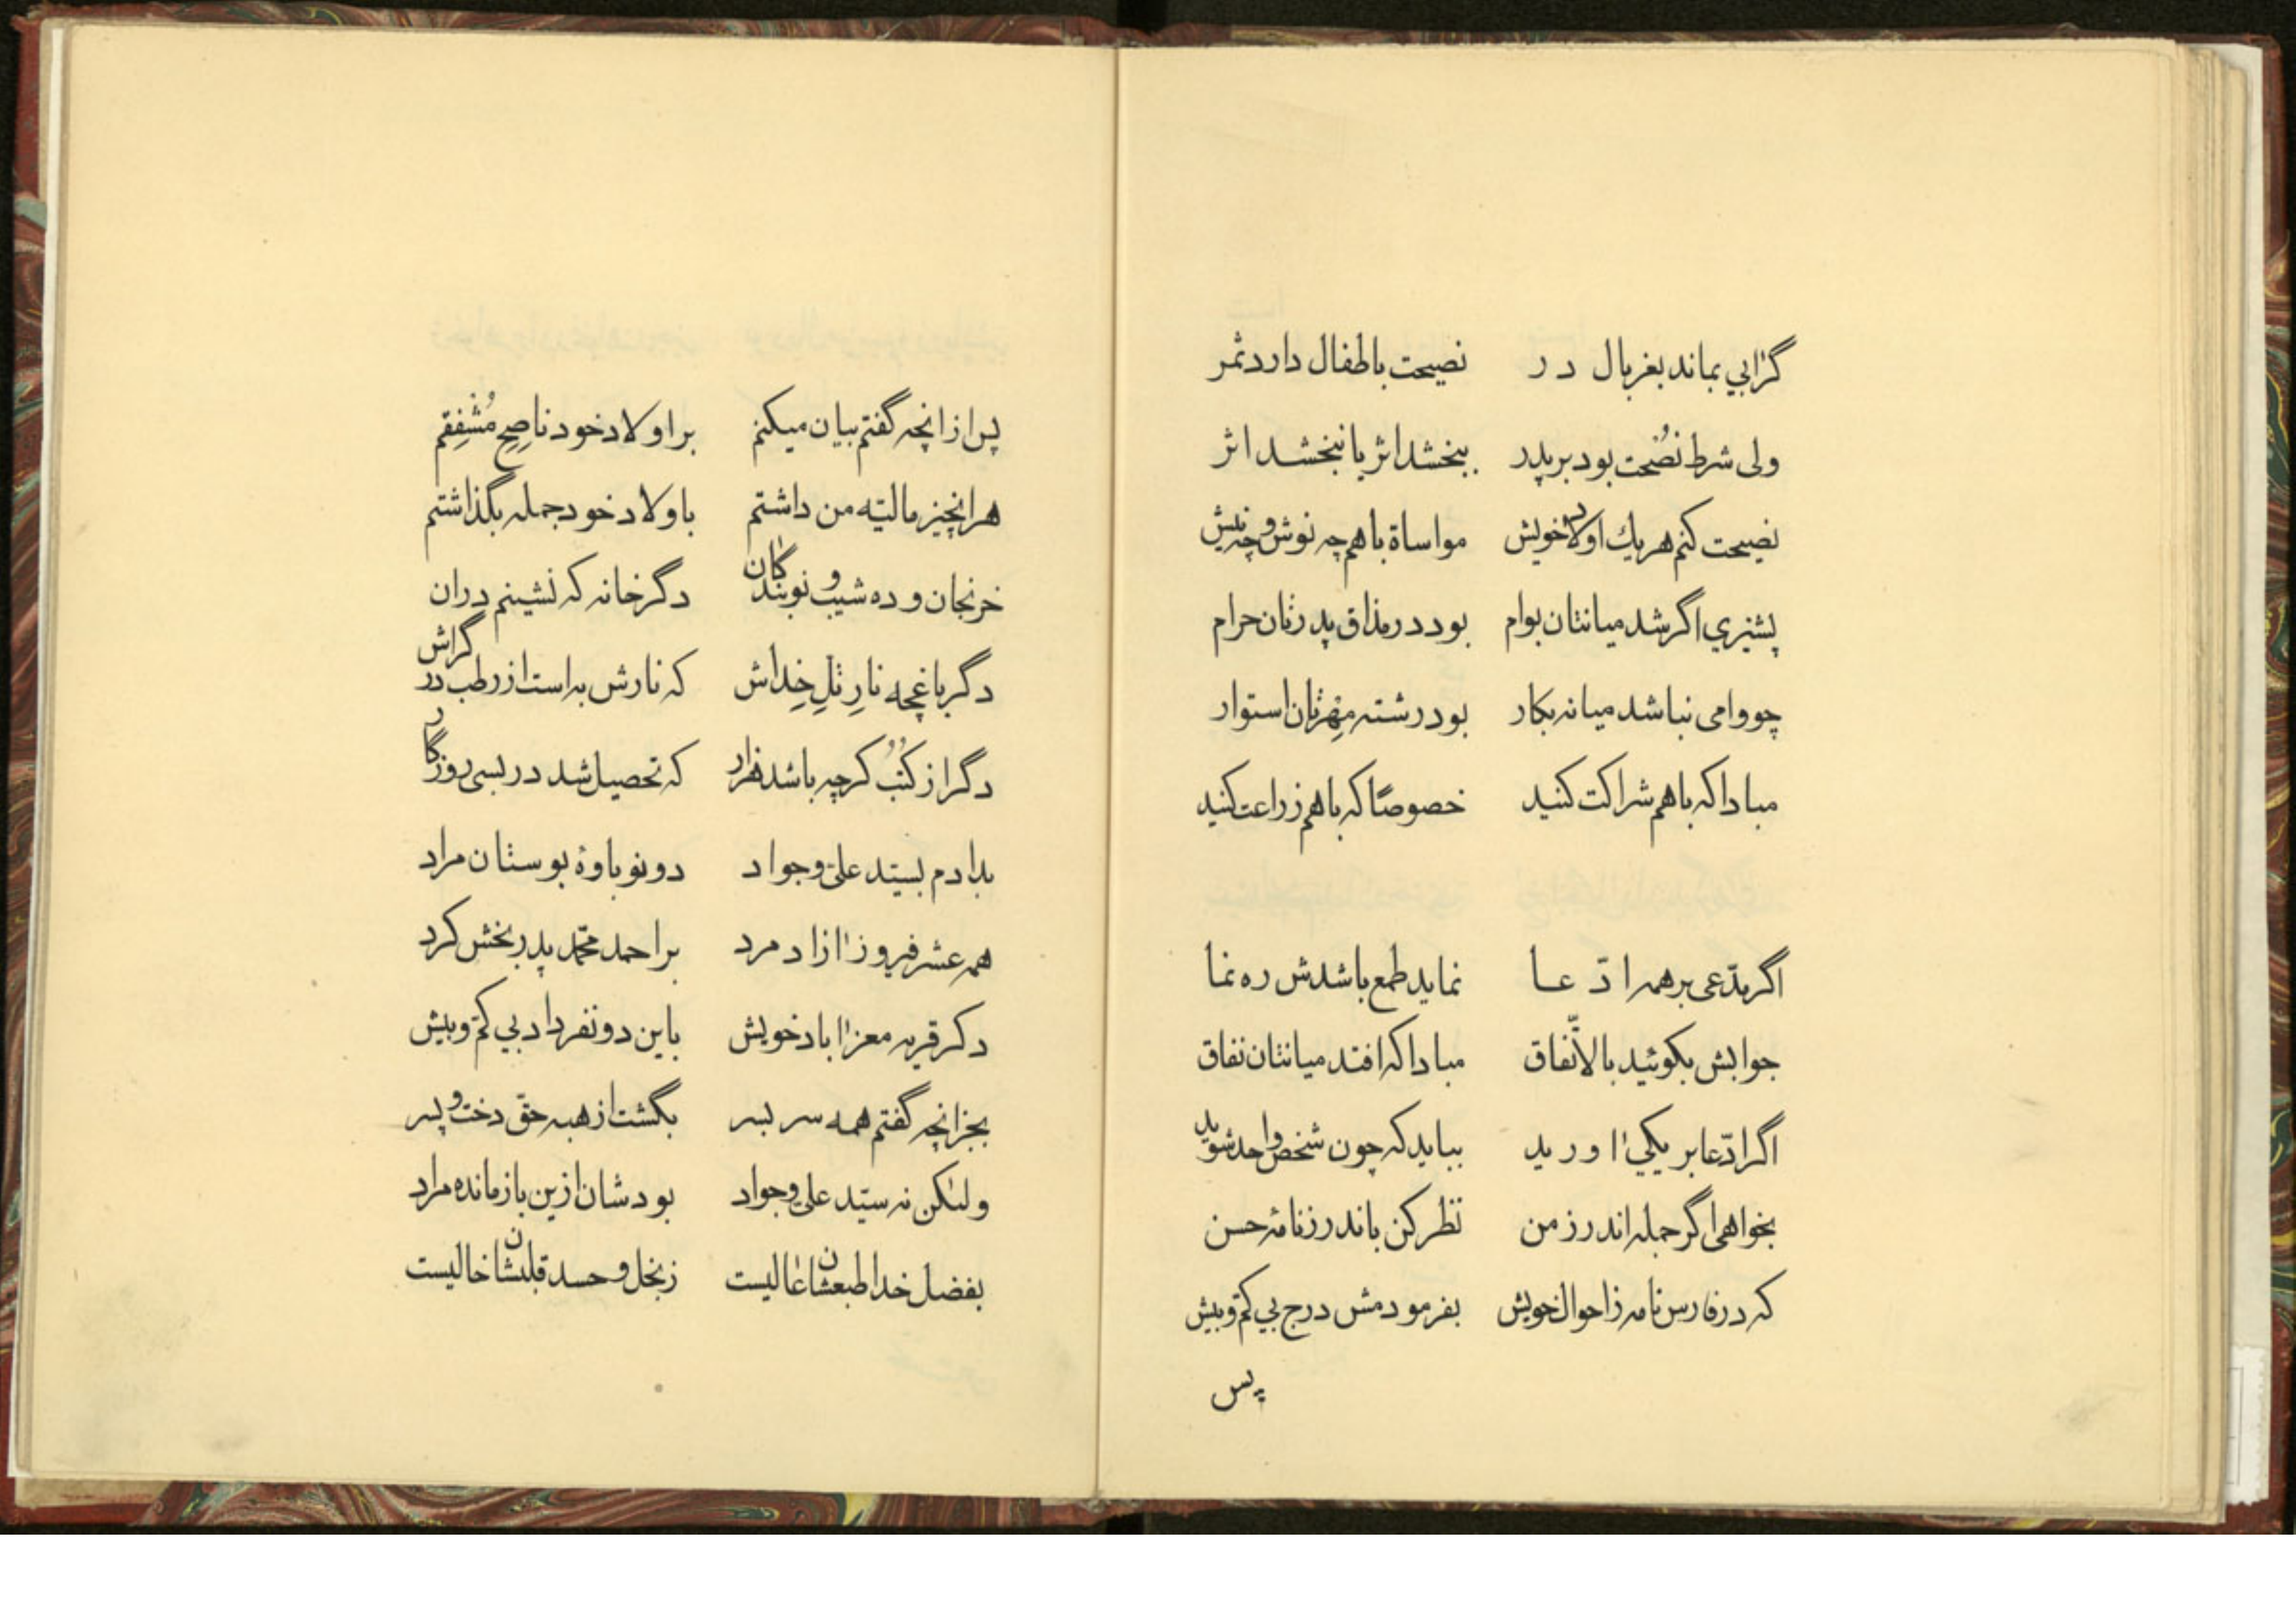 گر ابی بماند بغربال در نصیحت باطفال دارد ثمر
ولی شرط نُصحت بود بر پدر ببخشد اثر یا نبخشد اثر
نصیحت کنم هر یك اولاد خویش مواساة باهم چه نوش و چه نیش
پشیزی اگر شد میانتان بوام بود در مذاق پدرتان حرام
چو وامی نباشد میانه بکار بود رشته مِهرتان استوار
مبادا که باهم شراکت کنید خصوصًا که باهم زراعت کنید
اگر مدّعی بر همه ادّعا نماید طمع باشدش ره نما
جوابش بکوئید بالاتّفاق مبادا که افتد میانتان نفاق
اگر ادّعا بر یکی اورید بباید که چون شخص واحد شوید
بخواهی اگر جمله اندرز من نظر کن باندرزنامهٔ حسن
که در فارس نامه ز احوال خویش بفرمودمش درج بی کمّ و بیش
پس
پس از انچه گفتم بیان میکنم بر اولاد خود ناصِحِ مُشْفِقم
هر انچیز مالیّه من داشتم باولاد خود جمله بگذاشتم
خرنجان و ده شیب و نوبندگان دگر خانه که نشینم دران
دگر باغچه نارِ تلِ خِداش که نارش به است از رطب در گراش
دگر از کُتُب کرچه باشد هزار که تحصیل شد در بسی روزگار
بدادم بسیّد علیّ و جواد دو نوباوهٔ بوستان مراد
همه عشر فیروز ازاد مرد بر احمد محمّد پدر بخش کرد
دکر قریه معز اباد خویش باین دو نفر داد بی کمّ و بیش
بجز انچه گفتم همه سر بسر بگشت از هبه حقّ دخت و پسر
ولیکن نه سیّد علی و جواد بودشان ازین باز مانده مراد
بفضل خدا طبعشان عالیست ز بخل و حسد قلبشان خالیست